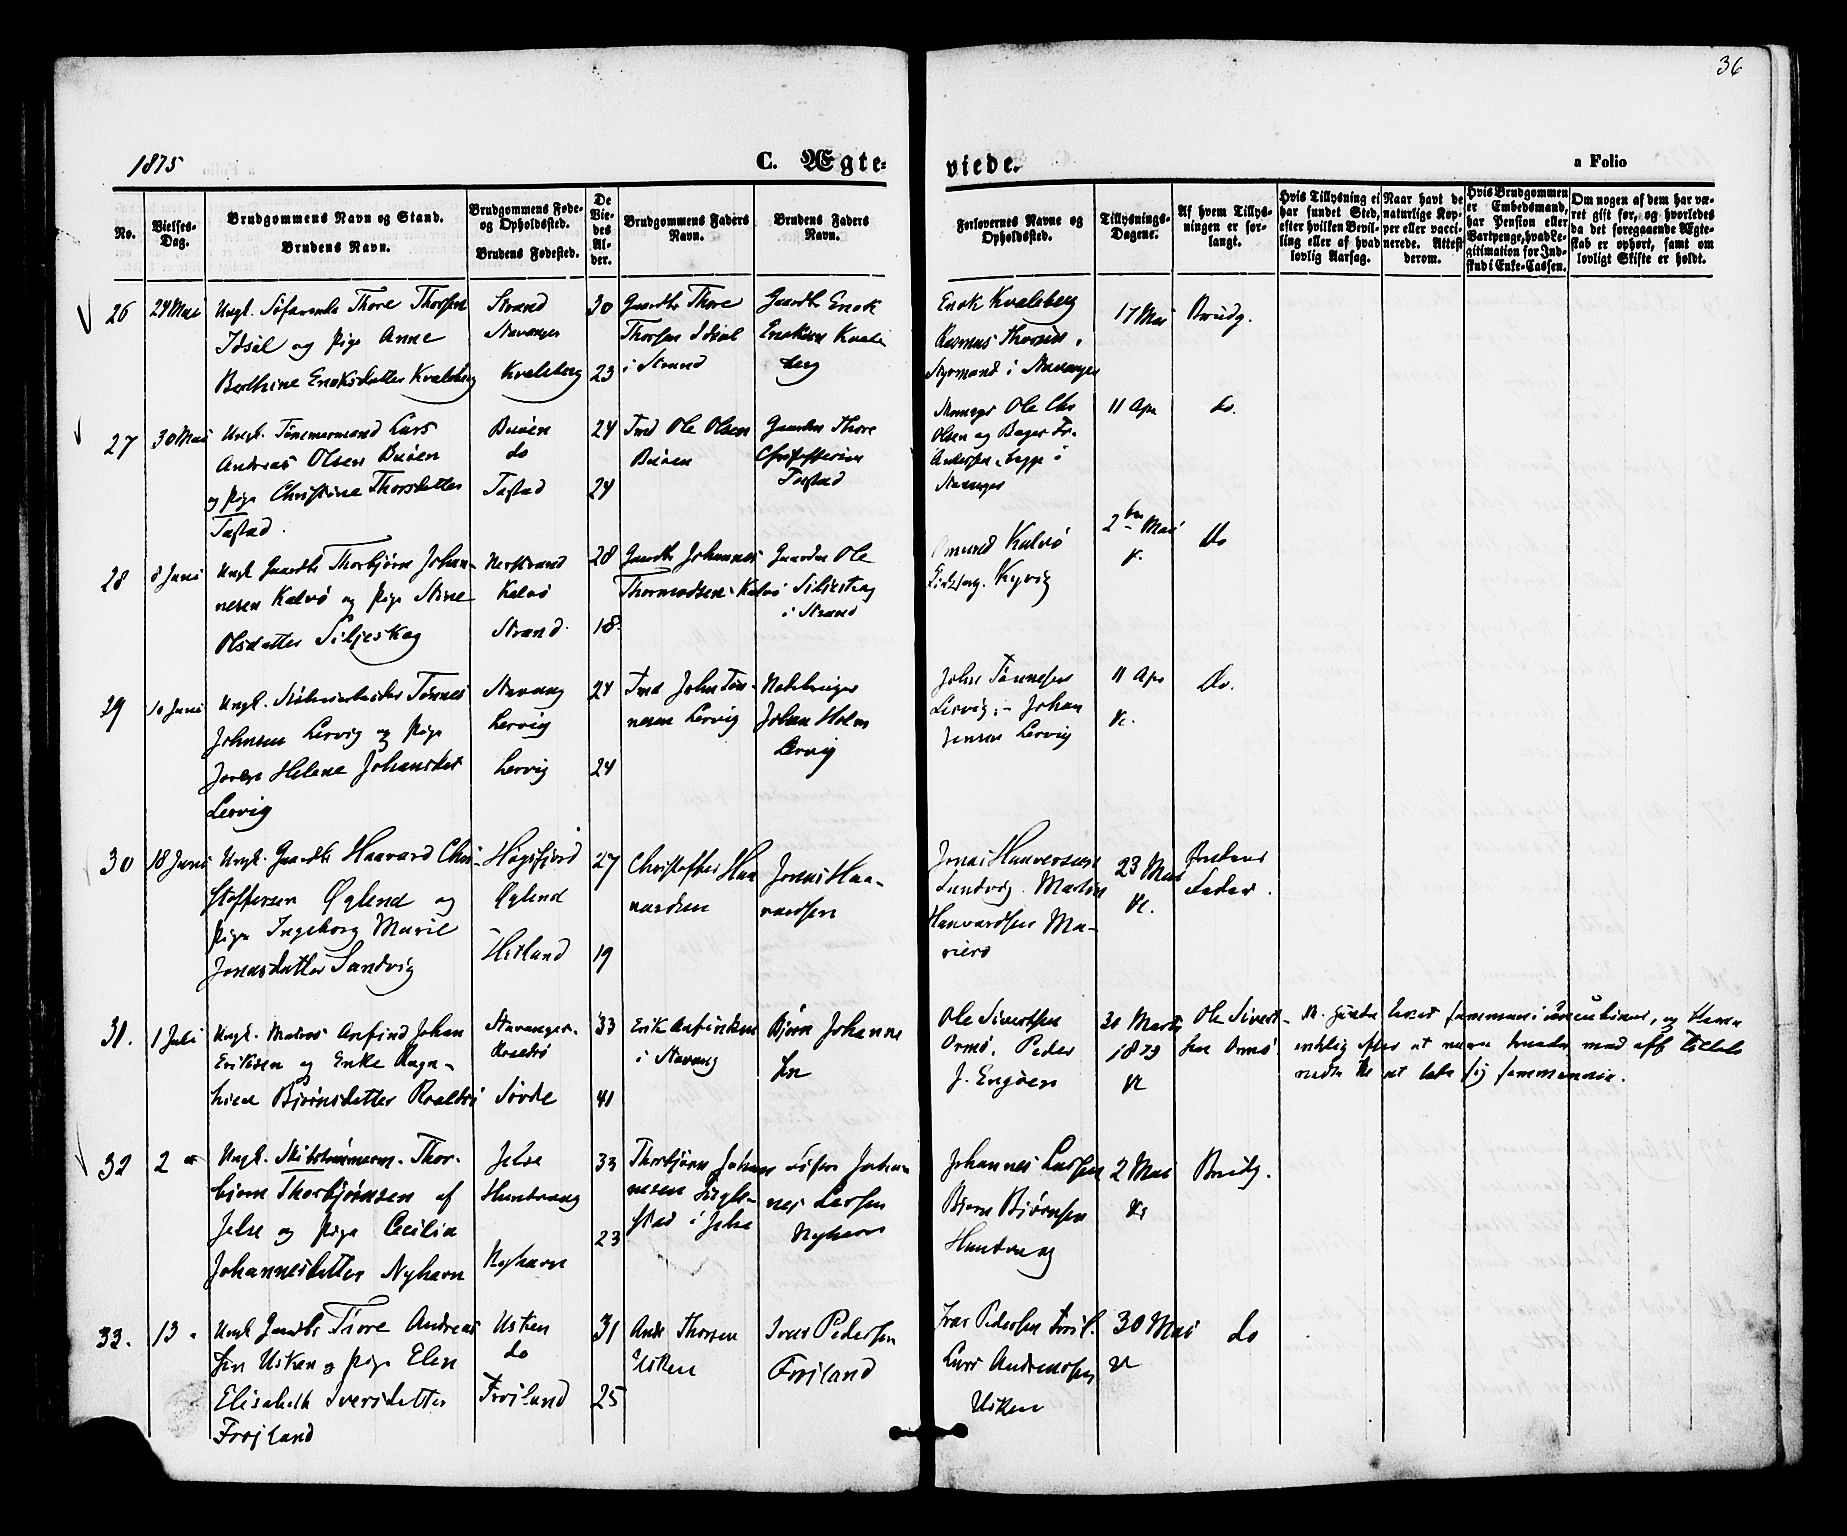 36
1875
C. Ægte-
viede.
a Folio
No.
Vielses-
Dag.
Brudgommens Navn og Stand.
Brudens Navn.
Brudgommens Føde-
og Opholdsted.
Brudens Fødested.
De
Vie-
des
Al-
der.
Brudgommens Faders
Navn.
Brudens Faders
Navn.
Forlovernes Navne og
Opholdssted.
Tillysnings-
Dagene.
Af hvem Tillys-
ningen er for-
langt.
Hvis Tillysning ei
har fundet Sted,
efter hvilken Bevil-
ling eller af hvad
lovlig Aarsag.
Naar havt de
naturlige Kop-
per eller vacci-
nerede. Attest
derom.
Hvis Brudgommen
er Embedsmand,
har Pension eller
Vartpenge, hvad Le-
gitimation for Ind-
skud i Enke-Cassen.
Om nogen af dem har væ-
ret gift før, og hvorledes
da det foregaaende Ægte-
skab er ophørt, samt om
lovligt Skifte er holdt.
26
24 Mai
Ungk. Søfarende Thore Thorsen
Idsal og Pige Anne
Berthine Enoksdatter Kvaleberg
Strand
Stavanger
Kvaleberg
30
23
Gaardbr Thore
Thorsen Idsal
i Strand
Gaardbr Enok
Enoksen Kvale
berg
Enok Kvaleberg
Rasmus
Styrmand i Stavanger
17 Mai
Brudg.
27
30 Mai
Ungk. Tømmermand Lars
Andreas Olsen Buøen
og Pige Christine Thorsdatter
Tastad.
Buøen
do
Tastad
24
24
Ind Ole Olsen
Buøen
Gaardbr Thore
Christoffersen
Tastad
Ole Chr
Olsen og Bager Fr.
Andersen, begge i
Stavanger
11 Apr
do.
28
8 Juni
Ungk Gaardbr Thorbjørn Johan-
nesen Kalvø og Pige Stine
Olsdatter Siljeskog
Nerstrand
Kalvø
Strand.
28
18.
Gaardbr Johannes
Thormodsen Kalvø
Gaardbr Ole
Siljeskog
i Strand
Omund Kalvø
Kyvig
2den Mai
v.
Do
29
10 Juni
Ungk. Tønnes
Johnsen Lervig og Pige
Helene Johansdtr
Lervig
Stavang
Lervig
Lervig
24
24
Ind John Tøn-
nesen Lervig
Johan Holm
Lervig
John Tønnesen
Lervig, - Johan
Jensen Lervig
11 Apr
v.
Do.
30
18 Juni
Ungk. Gaardbr Haavard Chri-
stoffersen Øglend og
Pige Ingeborg Marie
Jonasdatter Sandvig
Høgsfjord
Øglend
Hetland
27
19
Christoffer Haa
vardsen
Jonas Haa-
vardsen
Jonas Haaversen
Sandvig. Martin
Haavardsen Ma-
riero
23 Mai
v.
Brudens
Fader.
31.
1 Juli
Ungk. Matros Anfind Johan
Eriksen og Enke Ragn-
hild Bjørnsdatter Roaldsø
Stavanger-
Roaldsø
Søvde
33
41
Erik Anfindsen
i Stavang
Bjørn Johanne
sen
Ole Sivertsen
Ormø. Peder
J. Engøen
30 Marts
1873
v
Ole Sivert-
sen Ormø.
32
2
Ungk. Skibstømmerm. Thor-
bjørn Thorbjørnsen af
Jelse og Pige Cecilia
Johannesdatter Nyhavn
Jelse
Hundvaag
Nyhavn
33
23
Thorbjørn Johan
nesen
stad i Jelse
Johan
nes Larsen
Nyhavn
Johannes Larsen
Bjørn Bjørnsen
Hundvaag
2 Mai
v
Brudg.
33.
13 "
Ungk Gaardbr Tore Andreas
sen Usken og Pige Elen
Elisabeth Iversdatter
Frøiland
Usken
do
Frøiland
31
25
Andr Thorsen
Usken
Ivar Pedersen
Frøiland
Ivar Pedersen Frøil.
Lars Andreassen
Usken
30 Mai
v
do